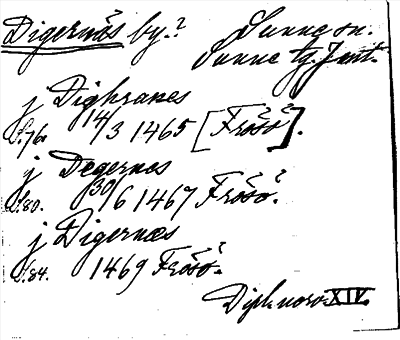 Digernäs by.? Sunne sn.
Sunne tg. Jmt.
j Dighranes
S.76. 14/3 1465 [Frösö].
j Degernes
S.80. 30/6 1467 Frösö.
j Digernæs
S.84. 1469 Frösö.
Dipl. norv. XIV.